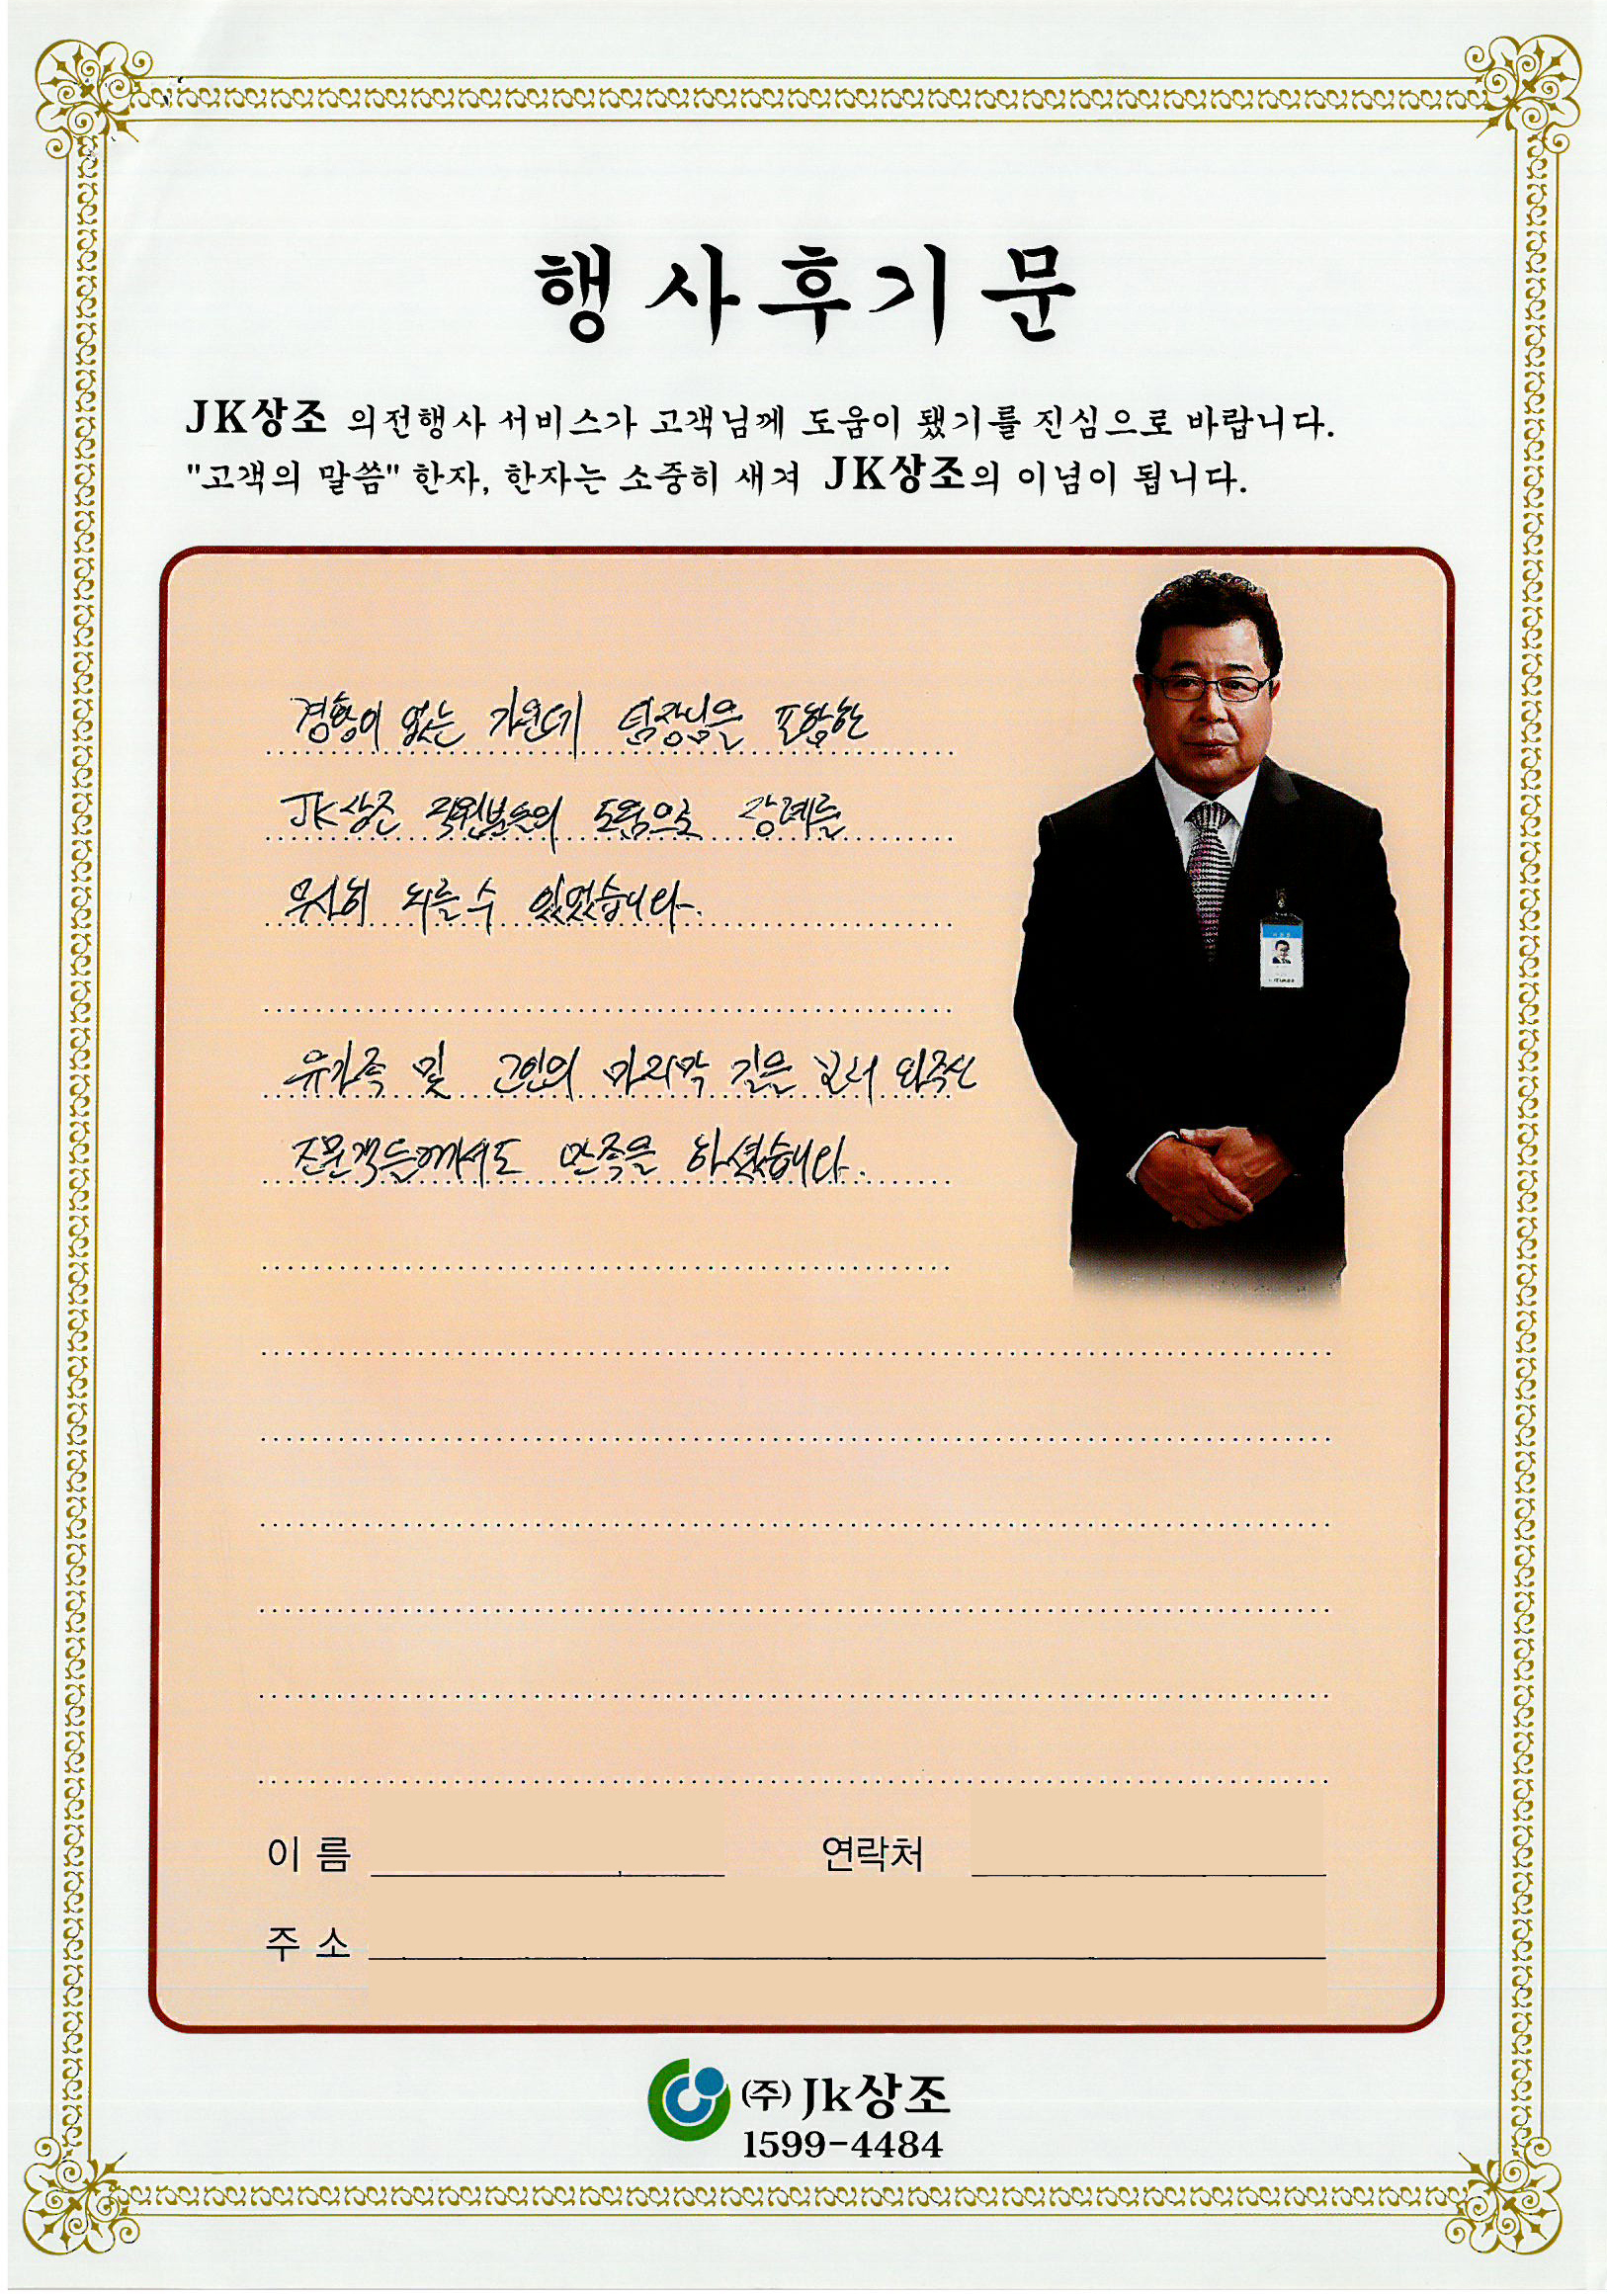 행사후기문
JK상조 의전행사 서비스가 고객님께 도움이 됐기를 진심으로 바랍니다.
"고객의 말씀" 한자, 한자는 소중히 새겨 JK상조의 이념이 됩니다.
경황이 없는 가운데 팀장님을 포함한
JK상조 직원분들의 도움으로 장례를
무사히 치를 수 있었습니다.
유가족 및 고인의 마지막 길을 보러 와주신
조문객들께서도 만족을 하셨습니다.
이 름 연락처
주 소
(주) Jk상조
1599-4484